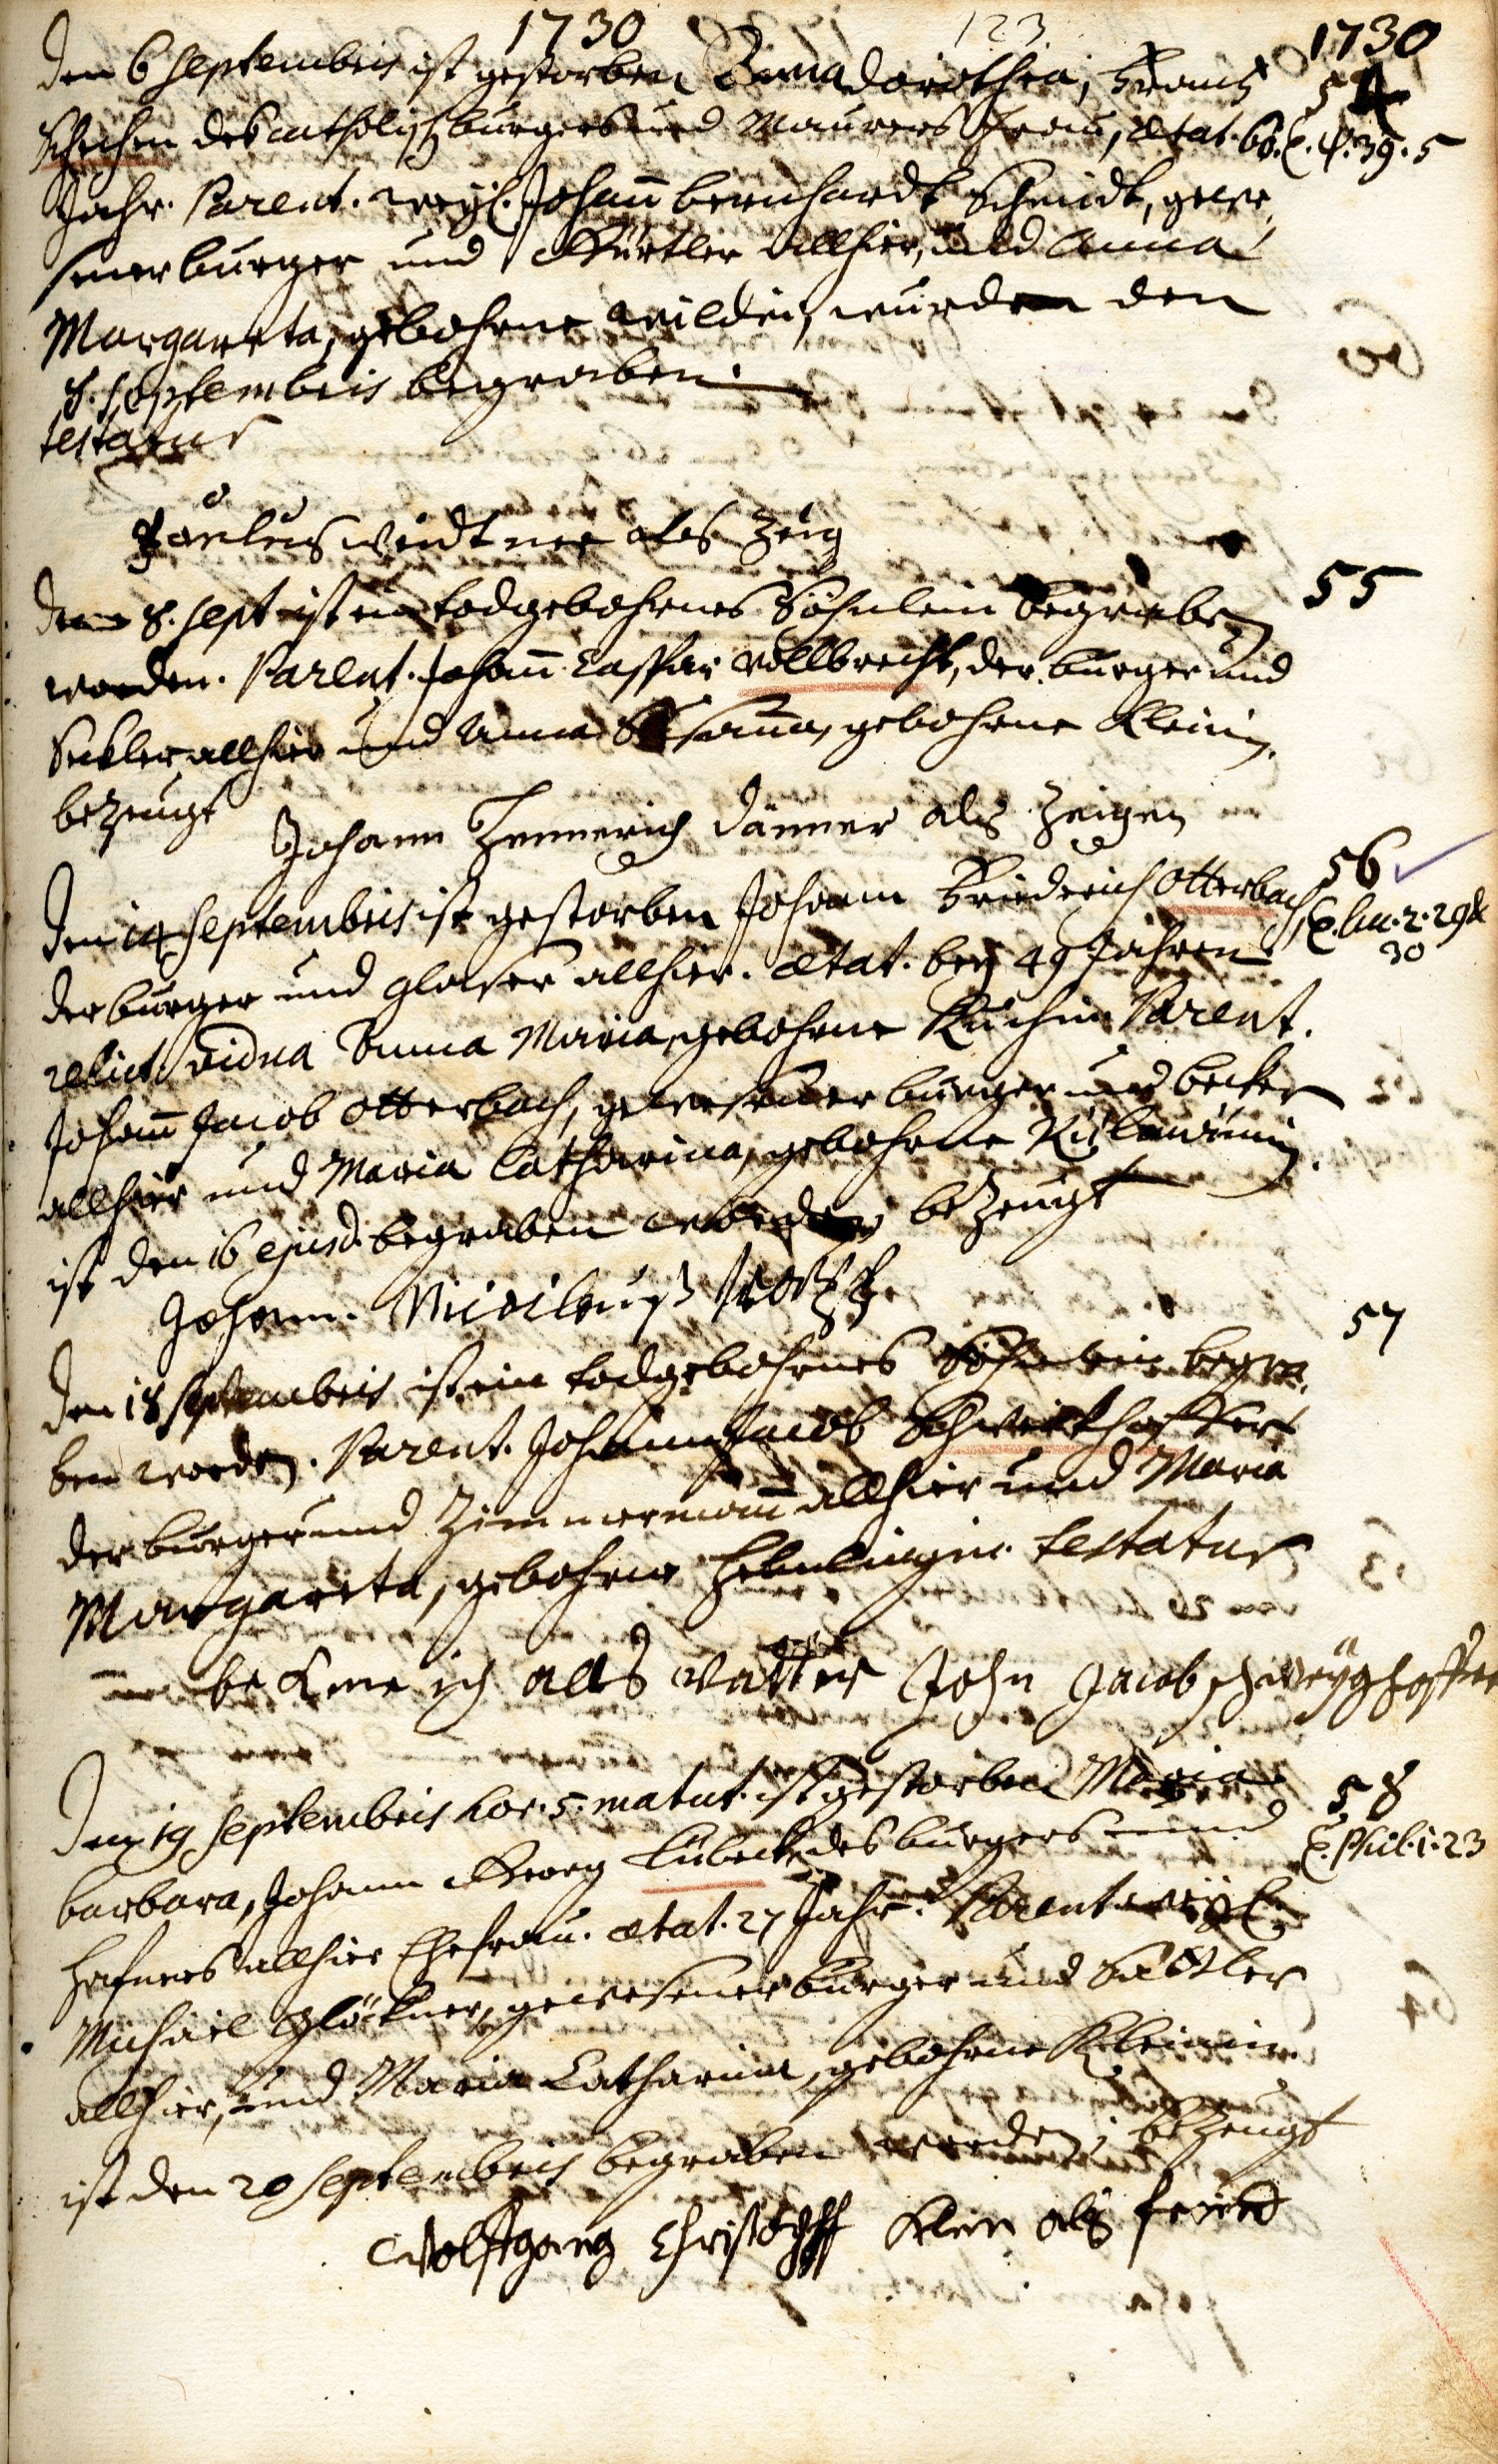 1730 123 1730
Den 6 Septembris ist gestorben Anna Dorothea, Frantz 54
Schechen des catholisch burgers und Maurers Frau, ætat. 60. T. ψ. 39. 5
Jahr. Parent. weyl. Johañ bernhardt Schmidt, gewe-
sener burger und Gürtler allhier, und Anna
Margaretha, gebohrne wildin, wurde den
8. Septembris begraben.
testatur
Paulus weidtner als Zeüg
Den 8. Sept ist ein todgebohrenes Söhnlein begraben 55
worden. Parent. Johañ Caspar Vollbrecht, der burger und
Seckler allhier und Anna Susanna, gebohrne Kleinin.
bezeugt
Johann Hennerich Dänner als Zeigen
Den 14 Septembris ist gestorben Johann Friederich Otterbach 56
der burger und glaser allhier. ætat. bey 49 Jahren T. Luc. 2. 29 &
30
relict. vidua Anna Maria, gebohrne Kuchin Parent.
Johañ Jacob Otterbach, gewesener burger und becker
allhier und Maria Catharina, gebohrne
ist den 16 ejusd. begraben worden, bezeugt
Johann
Den 18 Septembris ist ein todgebohrnes Söhnlein begra- 57
ben worden. Parent. Johann Jacob Schweickhoffert
der burger und Zimmermañ allhier und Maria
Margareta, gebohrne testatur
beKene ich alls Vatter John Jacob schweyghoffer
Den 19 Septembris hor. 5. matut. ist gestorben Maria 58
barbara, Johann Georg Lübeck, des burgers und T. Phil. 1. 23
Hafners allhier Ehefrau. ætat. 27 Jahr. Parent. weyl.
Michael Glöckner, gewesener burger und Sattler
allhier, und Maria Catharina, gebohrne Kleinin.
ist den 20 Septembris begraben worden, bezeugt
Wolffgang Christoff Klein als freind